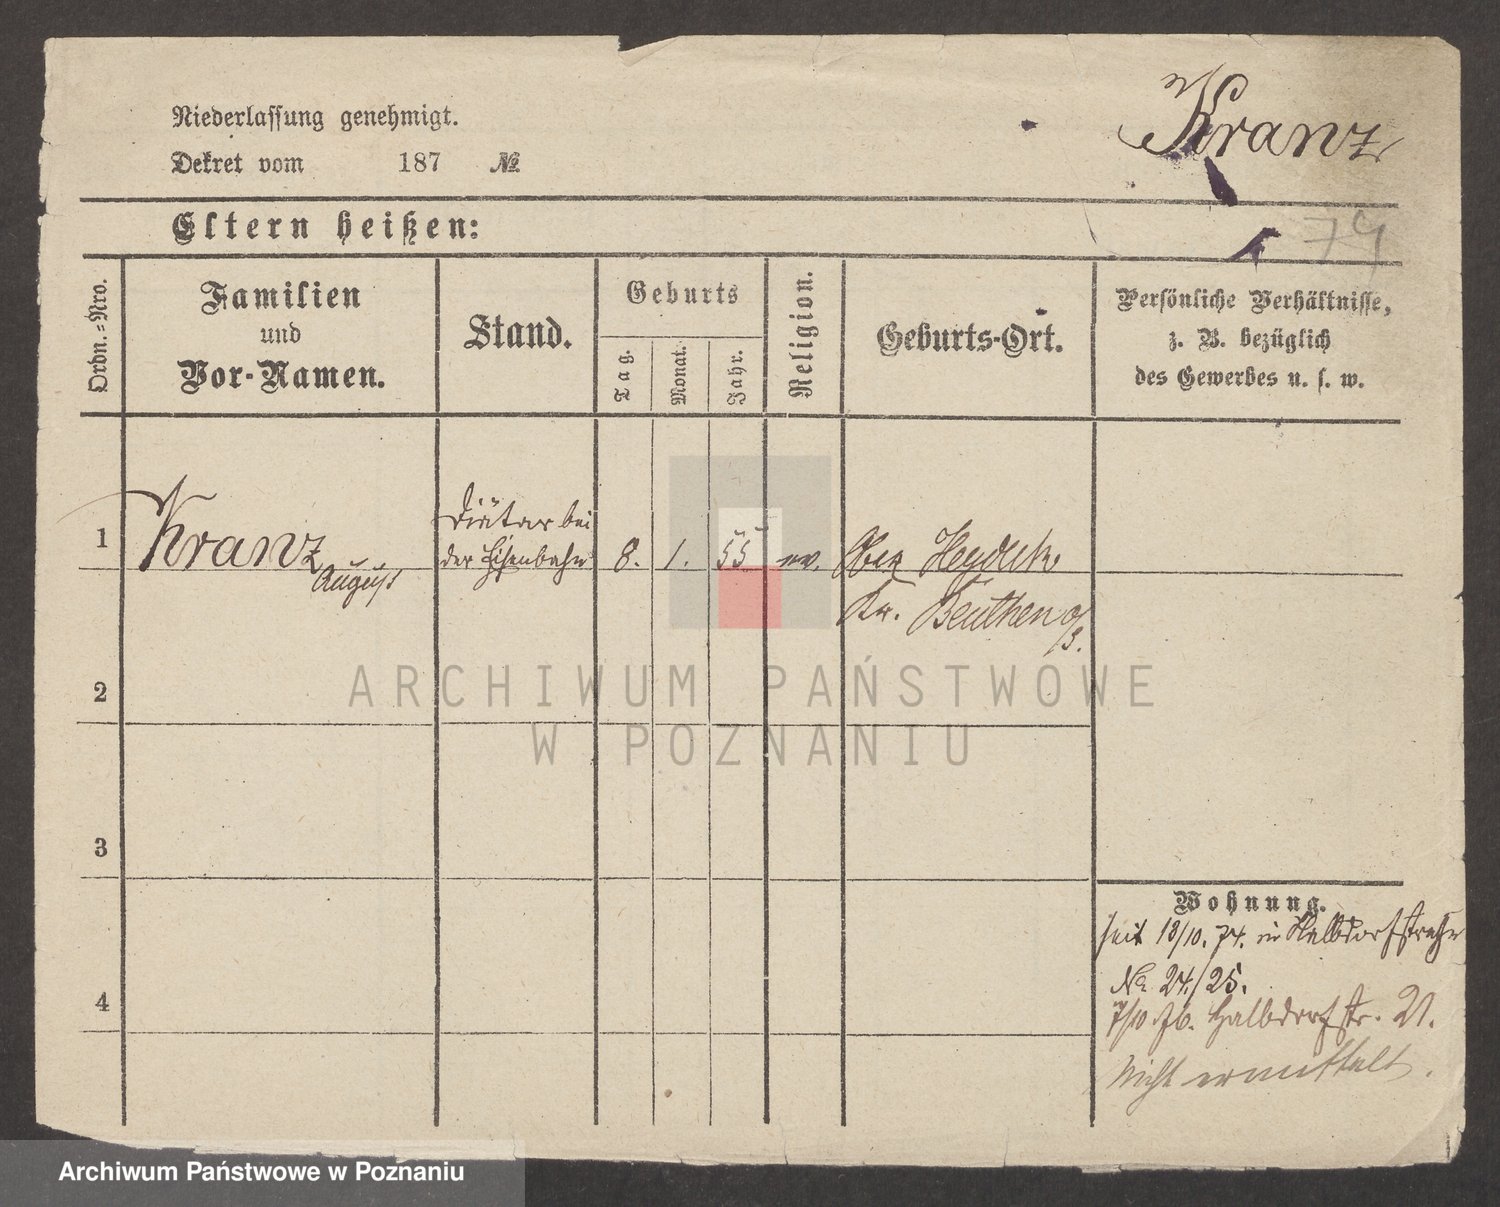 Niederlassung genehmigt.
Dekret vom 187 №
Kranz
Eltern heißen:
74
Ordn.=Nro.
Familien
und
Vor-Namen.
Stand.
Geburts
Tag.
Monat.
Jahr.
Religion.
Geburts-Ort.
Persönliche Verhältnisse,
z. B. bezüglich
des Gewerbes u. s. w.
1
Kranz
August
Diätar bei
der Eisenbahn
8. 1. 55 ev.
Ober Heyduk
Kr. Beuthen o/S.
2
3
4
Wohnung.
seit 13/10. 74. in Halbdorfstraße
No 24./25.
7/10 76. Halbdorfstr. 21.
Nicht ermittelt.
ARCHIWUM PAŃSTWOWE
W POZNANIU
Archiwum Państwowe w Poznaniu